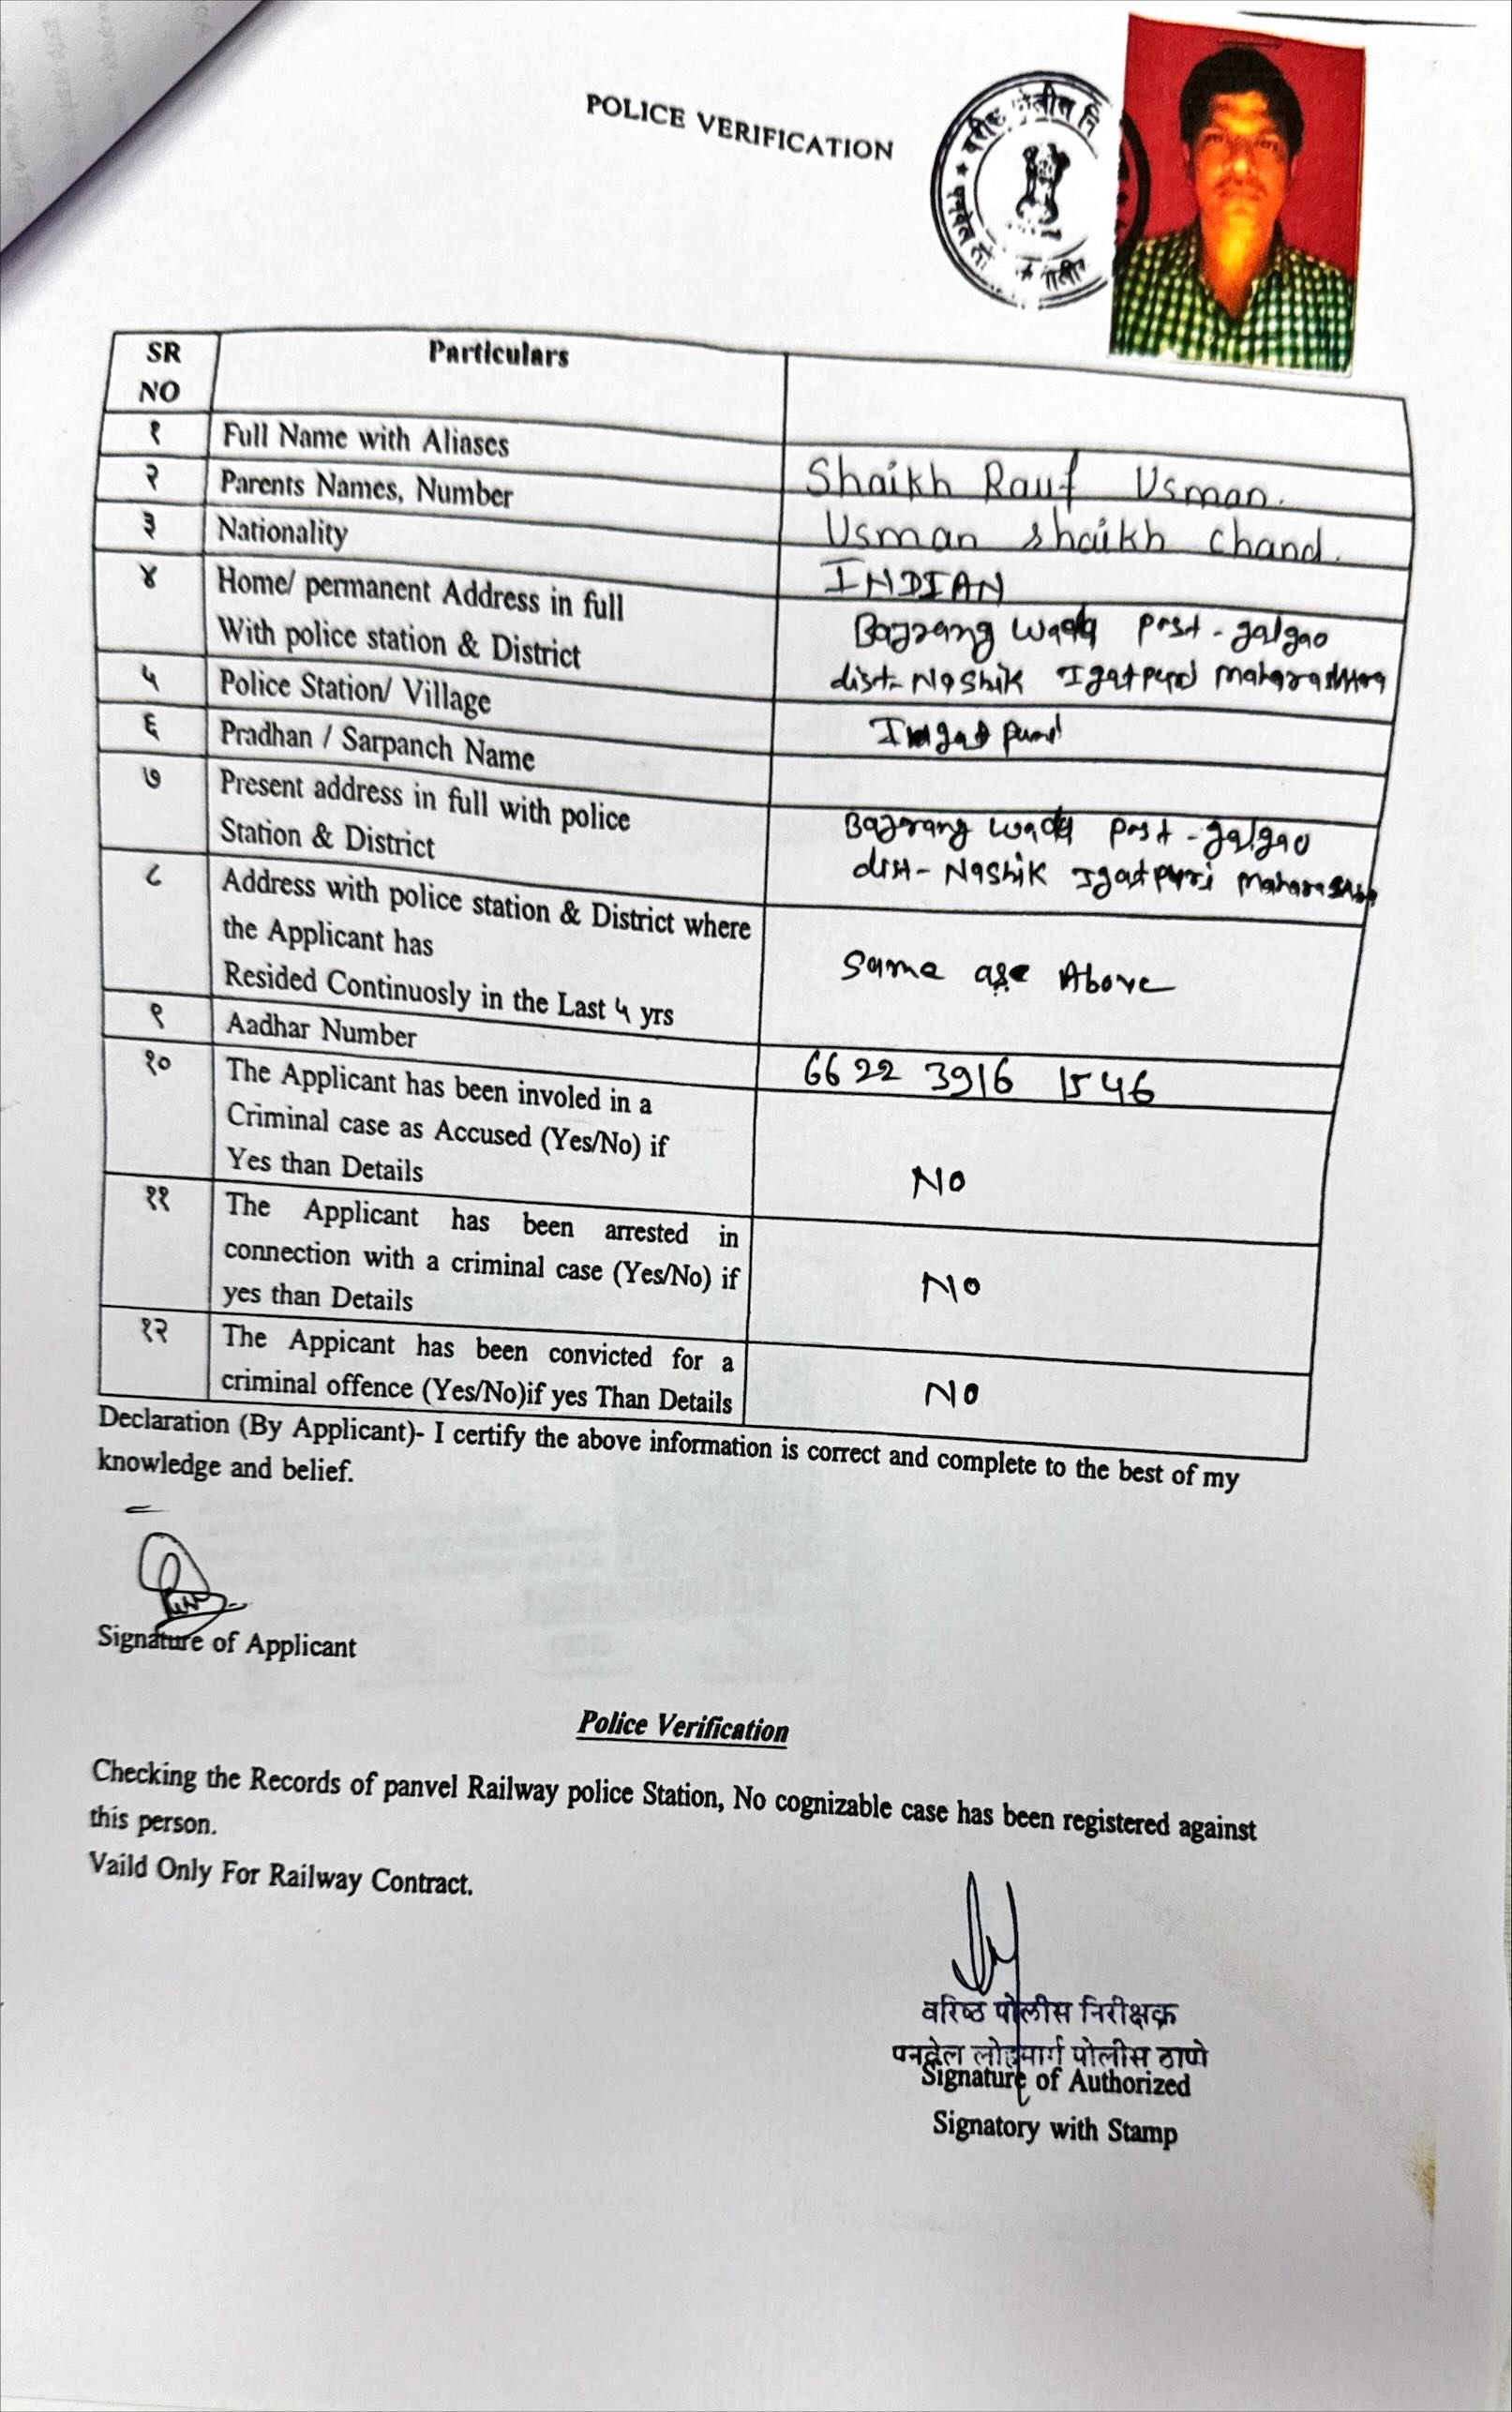 POLICE VERIFICATION
SR NO
Particulars
१
Full Name with Aliases
Shaikh Rauf Usman.
२
Parents Names, Number
Usman shaikh chand.
३
Nationality
INDIAN
४
Home/ permanent Address in full
With police station & District
Bajrang wada post - galgao
dist- Nashik Igatpuri maharashtra
५
Police Station/ Village
६
Pradhan / Sarpanch Name
७
Present address in full with police
Station & District
Bajrang wada post - galgao
dist- Nashik Igatpuri maharashtra
८
Address with police station & District where
the Applicant has
Resided Continuosly in the Last ५ yrs
Same Above
९
Aadhar Number
6622 3916 1546
१०
The Applicant has been involed in a
Criminal case as Accused (Yes/No) if
Yes than Details
No
११
The Applicant has been arrested in
connection with a criminal case (Yes/No) if
yes than Details
No
१२
The Appicant has been convicted for a
criminal offence (Yes/No)if yes Than Details
No
Declaration (By Applicant)- I certify the above information is correct and complete to the best of my
knowledge and belief.
Signature of Applicant
Police Verification
Checking the Records of panvel Railway police Station, No cognizable case has been registered against
this person.
Vaild Only For Railway Contract.
वरिष्ठ पोलीस निरीक्षक
पनवेल लोहमार्ग पोलीस ठाणे
Signature of Authorized
Signatory with Stamp